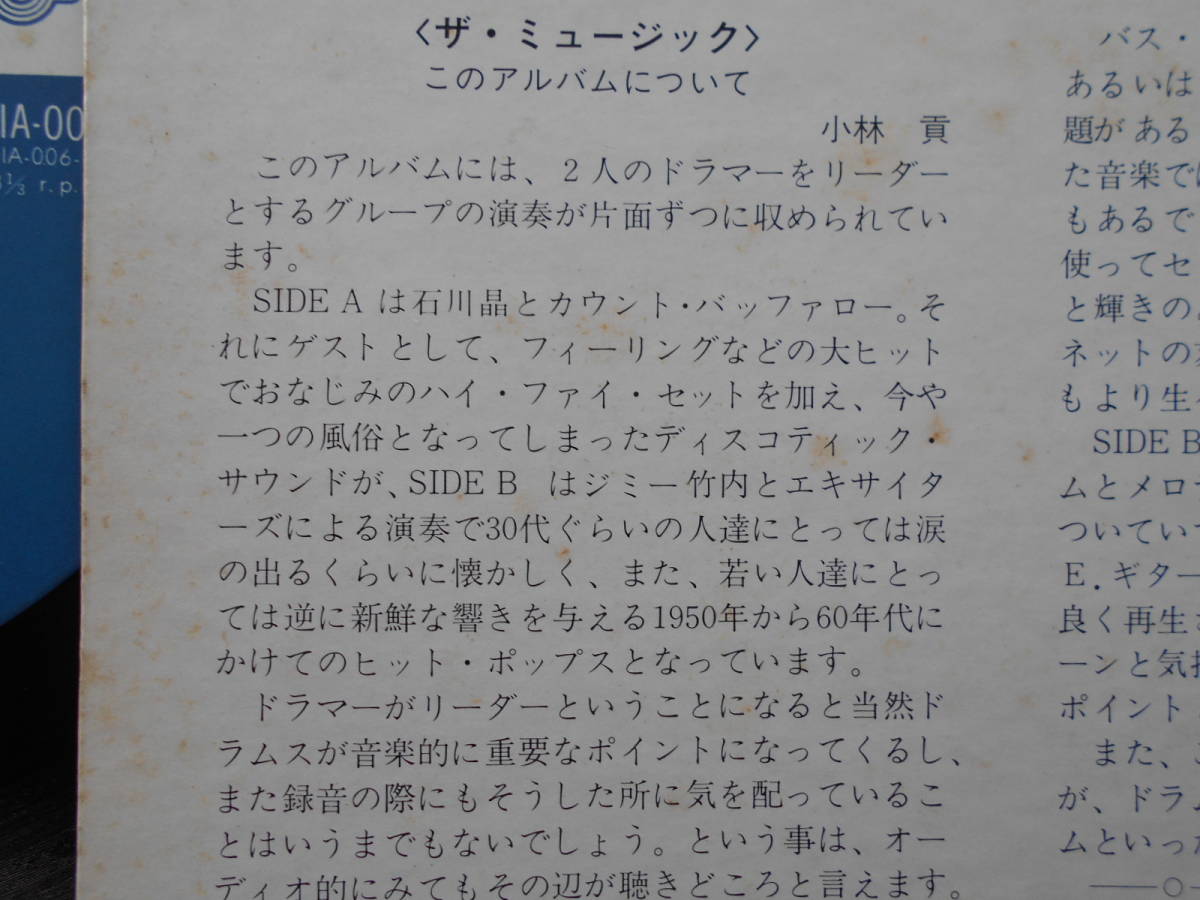 IA-00
IA-006-
1/3 r.p.
〈ザ・ミュージック〉
このアルバムについて
小林 貢
このアルバムには、2人のドラマーをリーダー
とするグループの演奏が片面ずつに収められてい
ます。
SIDE A は石川晶とカウント・バッファロー。そ
れにゲストとして、フィーリングなどの大ヒット
でおなじみのハイ・ファイ・セットを加え、今や
一つの風俗となってしまったディスコティック・
サウンドが、SIDE B はジミー竹内とエキサイタ
ーズによる演奏で30代ぐらいの人達にとっては涙
の出るくらいに懐かしく、また、若い人達にとっ
ては逆に新鮮な響きを与える1950年から60年代に
かけてのヒット・ポップスとなっています。
ドラマーがリーダーということになると当然ド
ラムスが音楽的に重要なポイントになってくるし、
また録音の際にもそうした所に気を配っているこ
とはいうまでもないでしょう。という事は、オー
ディオ的にみてもその辺が聴きどころと言えます。
バス・
あるいは
題がある
た音楽では
もあるで
使ってセ
と輝きの
ネットの
もより生
SIDE B
ムとメロ
ついてい
E.ギター
良く再生
ーンと気持
ポイント
また、
が、ドラム
ムといった
──○─